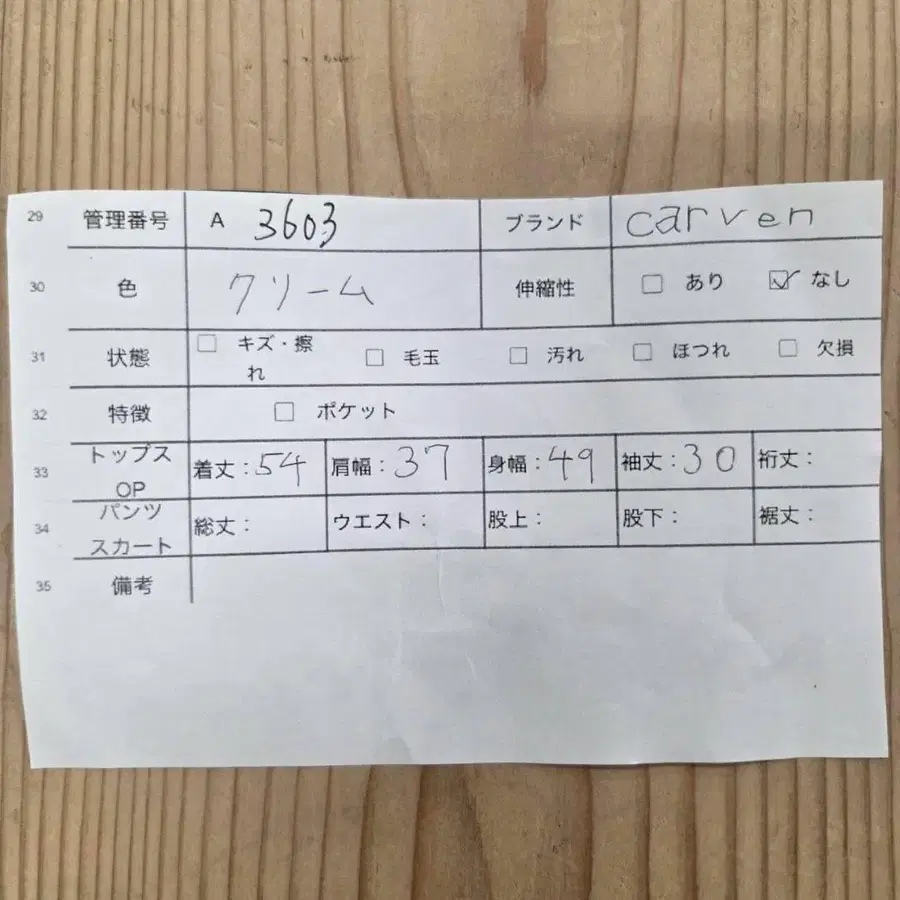 29 管理番号 A 3603 ブランド carven
30 色 クリーム 伸縮性 ☐ あり ☑ なし
31 状態 ☐ キズ・擦れ ☐ 毛玉 ☐ 汚れ ☐ ほつれ ☐ 欠損
32 特徴 ☐ ポケット
33 トップス OP 着丈：54 肩幅：37 身幅：49 袖丈：30 裄丈：
34 パンツ スカート 総丈： ウエスト： 股上： 股下： 裾丈：
35 備考